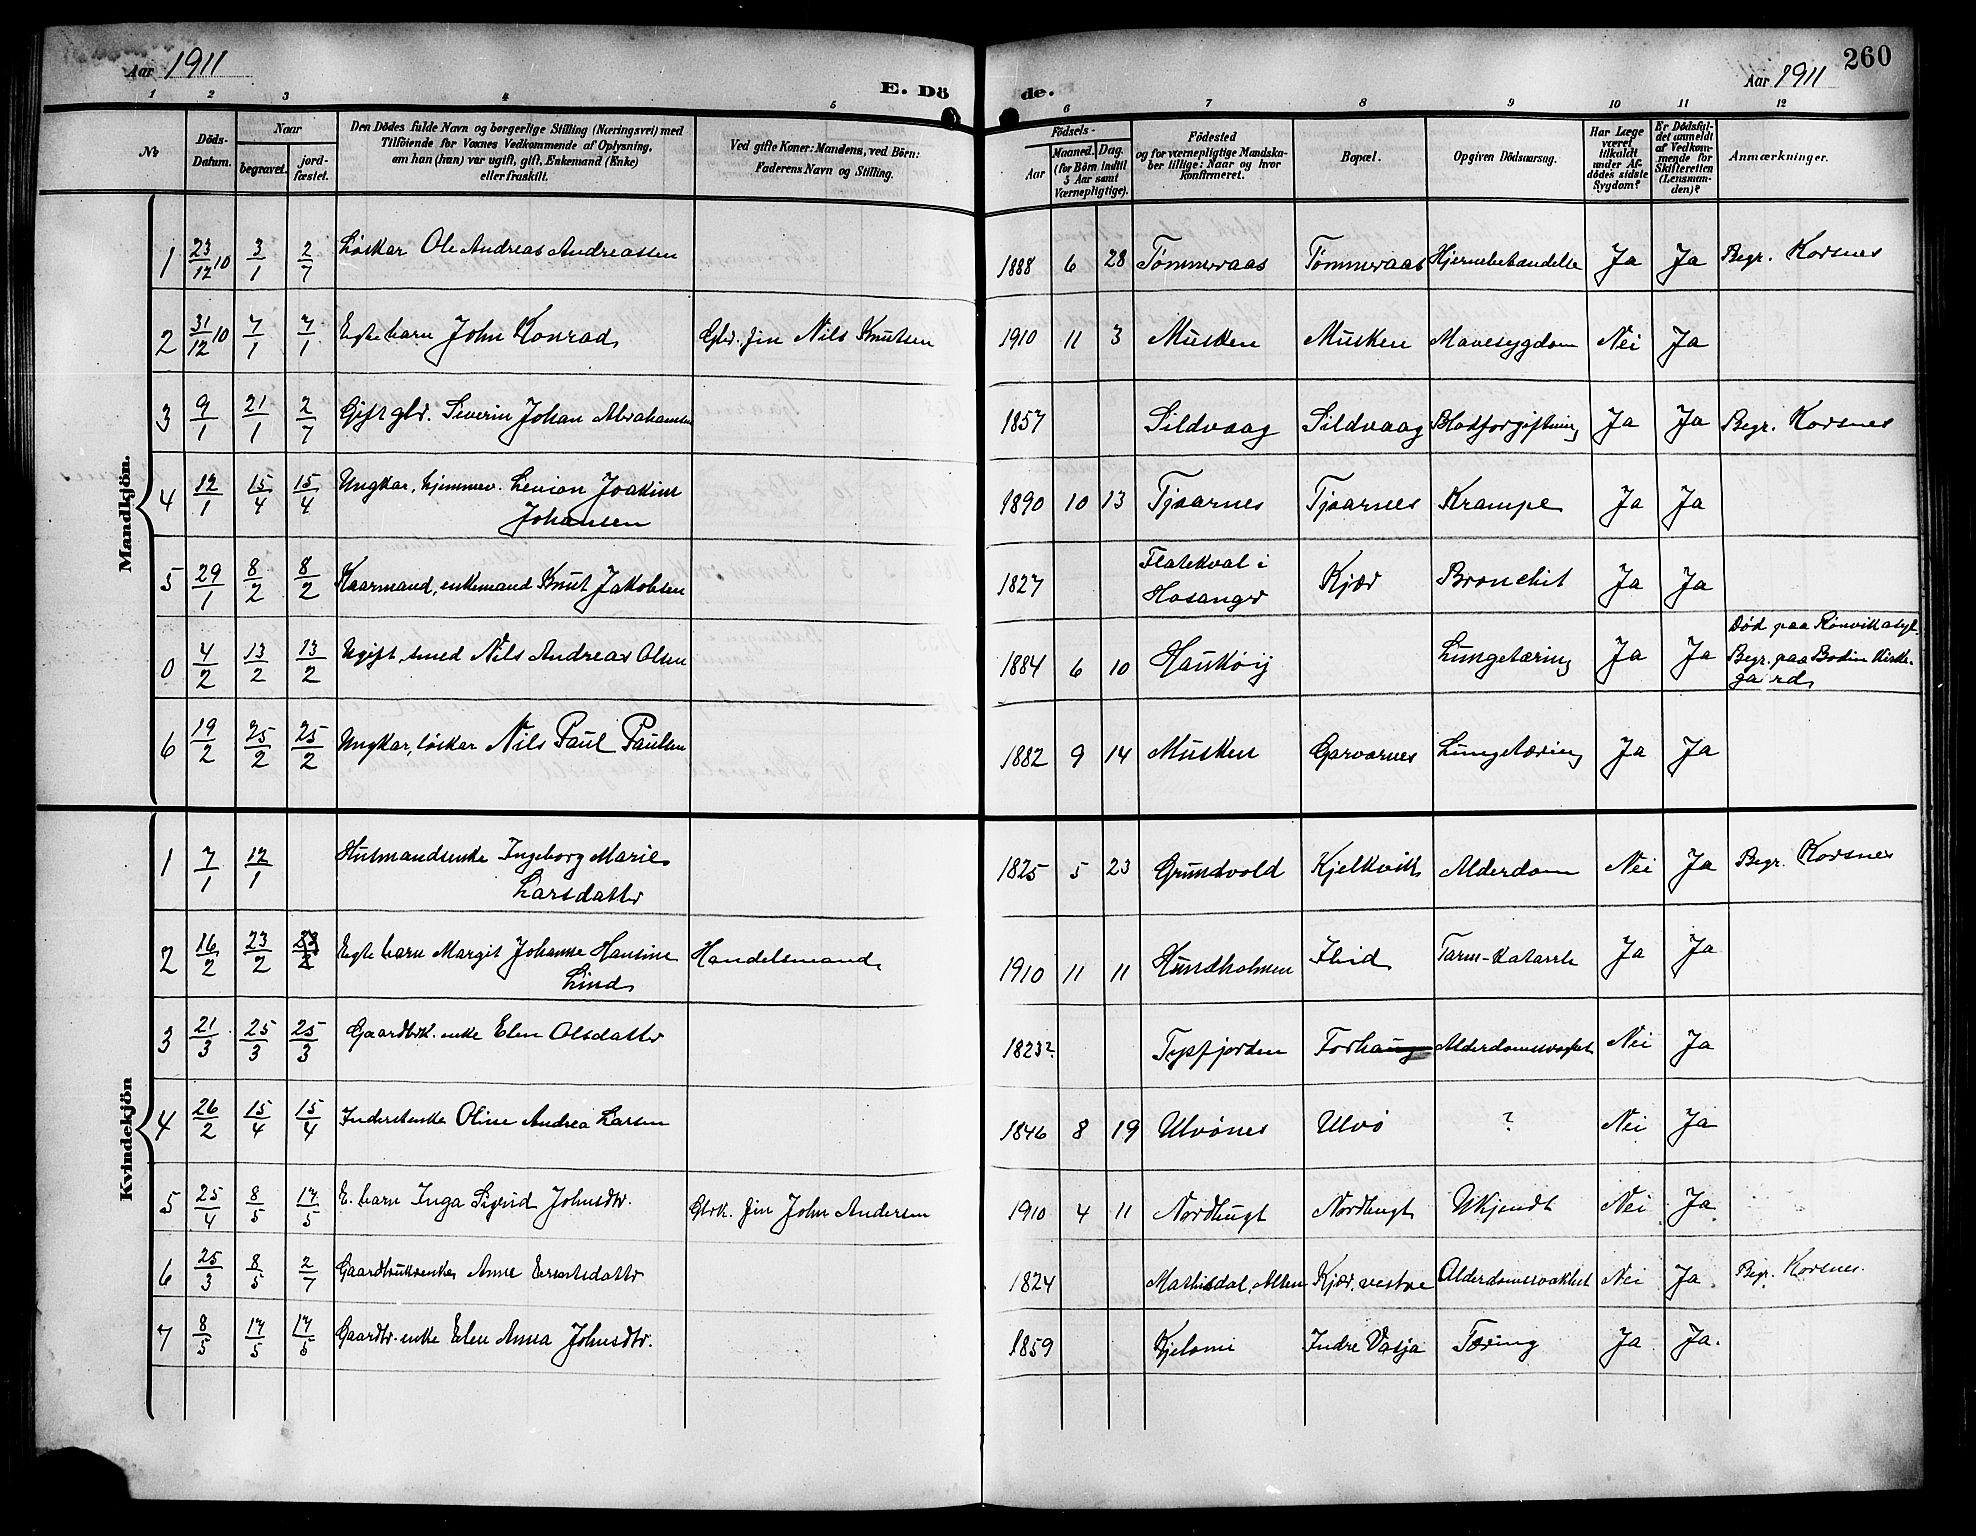 Aar 1911
E. Dö
de.
Aar 1911
260
1 2 3 4 5 6 7 8 9 10 11 12
№
Döds-Datum.
Naar
begravet.
jord-fæstet.
Den Dödes fulde Navn og borgerlige Stilling (Næringsvei) med
Tilföiende for Voxnes Vedkommende af Oplysning,
om han (hun) var ugift, gift, Enkemand (Enke)
eller fraskilt.
Ved gifte Koner: Mandens, ved Börn:
Faderens Navn og Stilling.
Födsels-
Aar
Maaned. Dag.
(for Börn indtil
5 Aar samt
Værnepligtige).
Födested
og for værnepligtige Mandska-
ber tillige: Naar og hvor
konfirmeret.
Bopæl.
Opgiven Dödsaarsag.
Har Læge
været
tilkaldt
under Af-
dödes sidste
Sygdom?
Er Dödsfal-
det anmeldt
af Vedkom-
mende for
Skifteretten
(Lensman-
den)?
Anmærkninger.
Mandkjön.
1 23/12 10 3/1 2/7 Løskar Ole Andreas Andreassen 1888 6 28 Tømmeraas Tømmeraas Hjernebetændelse Ja Ja Begr. Korsnes
2 31/12 10 7/1 7/1 Egte barn John Konrad Gbr. Jin Nils Knutsen 1910 11 3 Musken Musken Mavesygdom Nei Ja
3 9/1 21/1 2/7 Gift gbr. Severin Johan Abrahamsen 1857 Sildvaag Sildvaag Blodforgiftning Ja Ja Begr. Korsnes
4 12/1 15/4 15/4 Ungkar, hjemmev. Levion Joakim
Johansen 1890 10 13 Tjaarnes Tjaarnes Krampe Ja Ja
5 29/1 8/2 8/2 Kaarmand, enkemand Knut Jakobsen 1827 Flatekval i
Hosanger Kjær Bronchit Ja Ja
0 4/2 13/2 13/2 Ugift, smed Nils Andreas Olsen 1884 6 10 Haukøy Lungetæring Ja Ja Død paa Rønvik asyl.
Begr. paa Bodin Kirke-
gaard
6 19/2 25/2 25/2 Ungkar, løskar Nils Paul Paulsen 1882 9 14 Musken Garvarnes Lungetæring Ja Ja
Kvindekjön
1 7/1 12/1 Husmandsenke Ingeborg Marie
Larsdatter 1825 5 23 Grundvold Kjelkvik Alderdom Nei Ja Begr. Korsnes
2 16/2 23/2 23/2 Egte barn Margit Johanne Hansine
Lind Handelsmand 1910 11 11 Hundholmen Tarm-Katarrh Ja Ja
3 21/3 25/3 25/3 Gaardbrk. enke Elen Olsdatter 1823? Tysfjorden Forhaug Alderdomssvakhet Nei Ja
4 26/2 15/4 15/4 Inderstenke Oline Andrea Larsen 1846 8 19 Ulvønes Ulvø ? Nei Ja
5 25/4 8/5 17/5 E. barn Inga Sigrid Johnsdtr. Gbrk. Jin John Andersen 1910 4 11 Nordbugt Nordbugt Ukjendt Nei Ja
6 25/3 8/5 2/7 Gaardbrukerenke Anne Erentsdatter 1824 Mathisdal, Alten Kjær, vestre Alderdomssvakhet Nei Ja Begr. Korsnes.
7 8/5 17/5 17/5 Gaardbr. enke Elen Anna Johnsdtr. 1859 Kjelomi Indre Vasja Tæring Ja Ja.